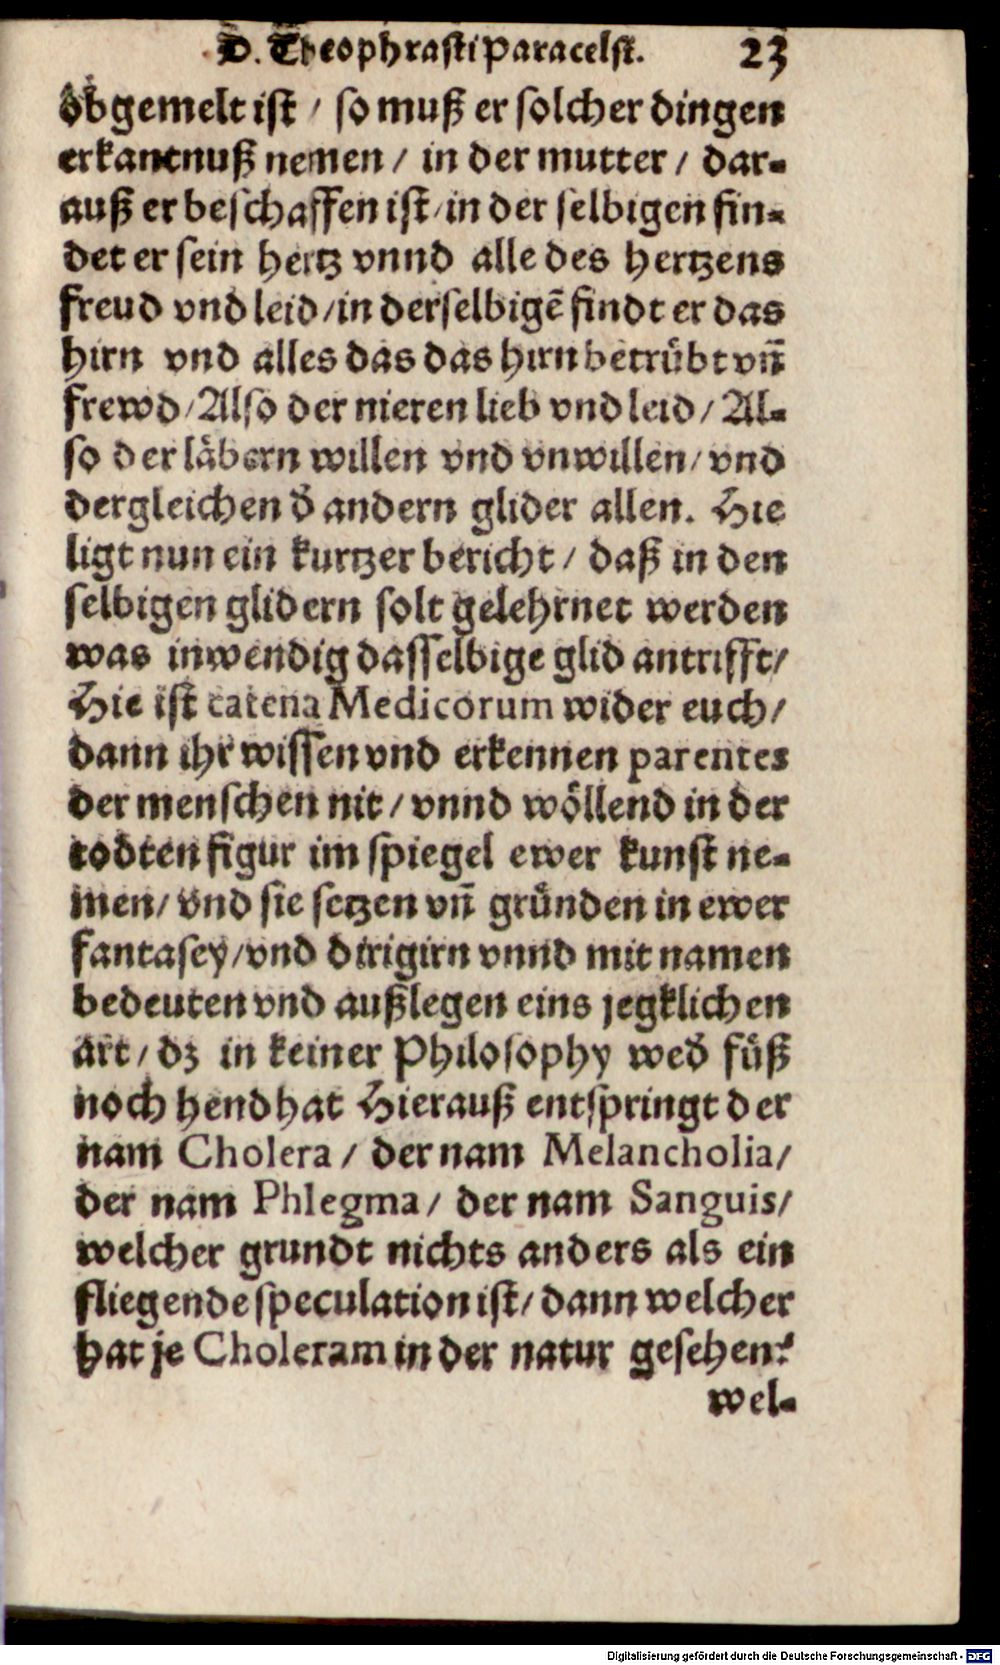 D. Theophrasti Paracelsi. 23
obgemelt ist / so muß er solcher dingen
erkantnuß nemen / in der mutter / dar-
auß er beschaffen ist / in der selbigen fin-
det er sein hertz vnnd alle des hertzens
freud vnd leid / in derselbigē findt er das
hirn vnd alles das das hirn betrübt vñ
frewd / Also der nieren lieb vnd leid / Al-
so der läbern willen vnd vnwillen / vnd
dergleichen d̄ andern glider allen. Hie
ligt nun ein kurtzer bericht / daß in den
selbigen glidern solt gelehrnet werden
was inwendig dasselbige glid antrifft /
Hie ist catena Medicorum wider euch /
dann ihr wissen vnd erkennen parentes
der menschen nit / vnnd wöllend in der
todten figur im spiegel ewer kunst ne-
men / vnd sie setzen vñ gründen in ewer
fantasey / vnd dirigirn vnnd mit namen
bedeuten vnd außlegen eins jegklichen
art / dz in keiner Philosophy wed̄ füß
noch hend hat Hierauß entspringt der
nam Cholera / der nam Melancholia /
der nam Phlegma / der nam Sanguis /
welcher grundt nichts anders als ein
fliegende speculation ist / dann welcher
hat je Choleram in der natur gesehen?
wel-
Digitalisierung gefördert durch die Deutsche Forschungsgemeinschaft - DFG